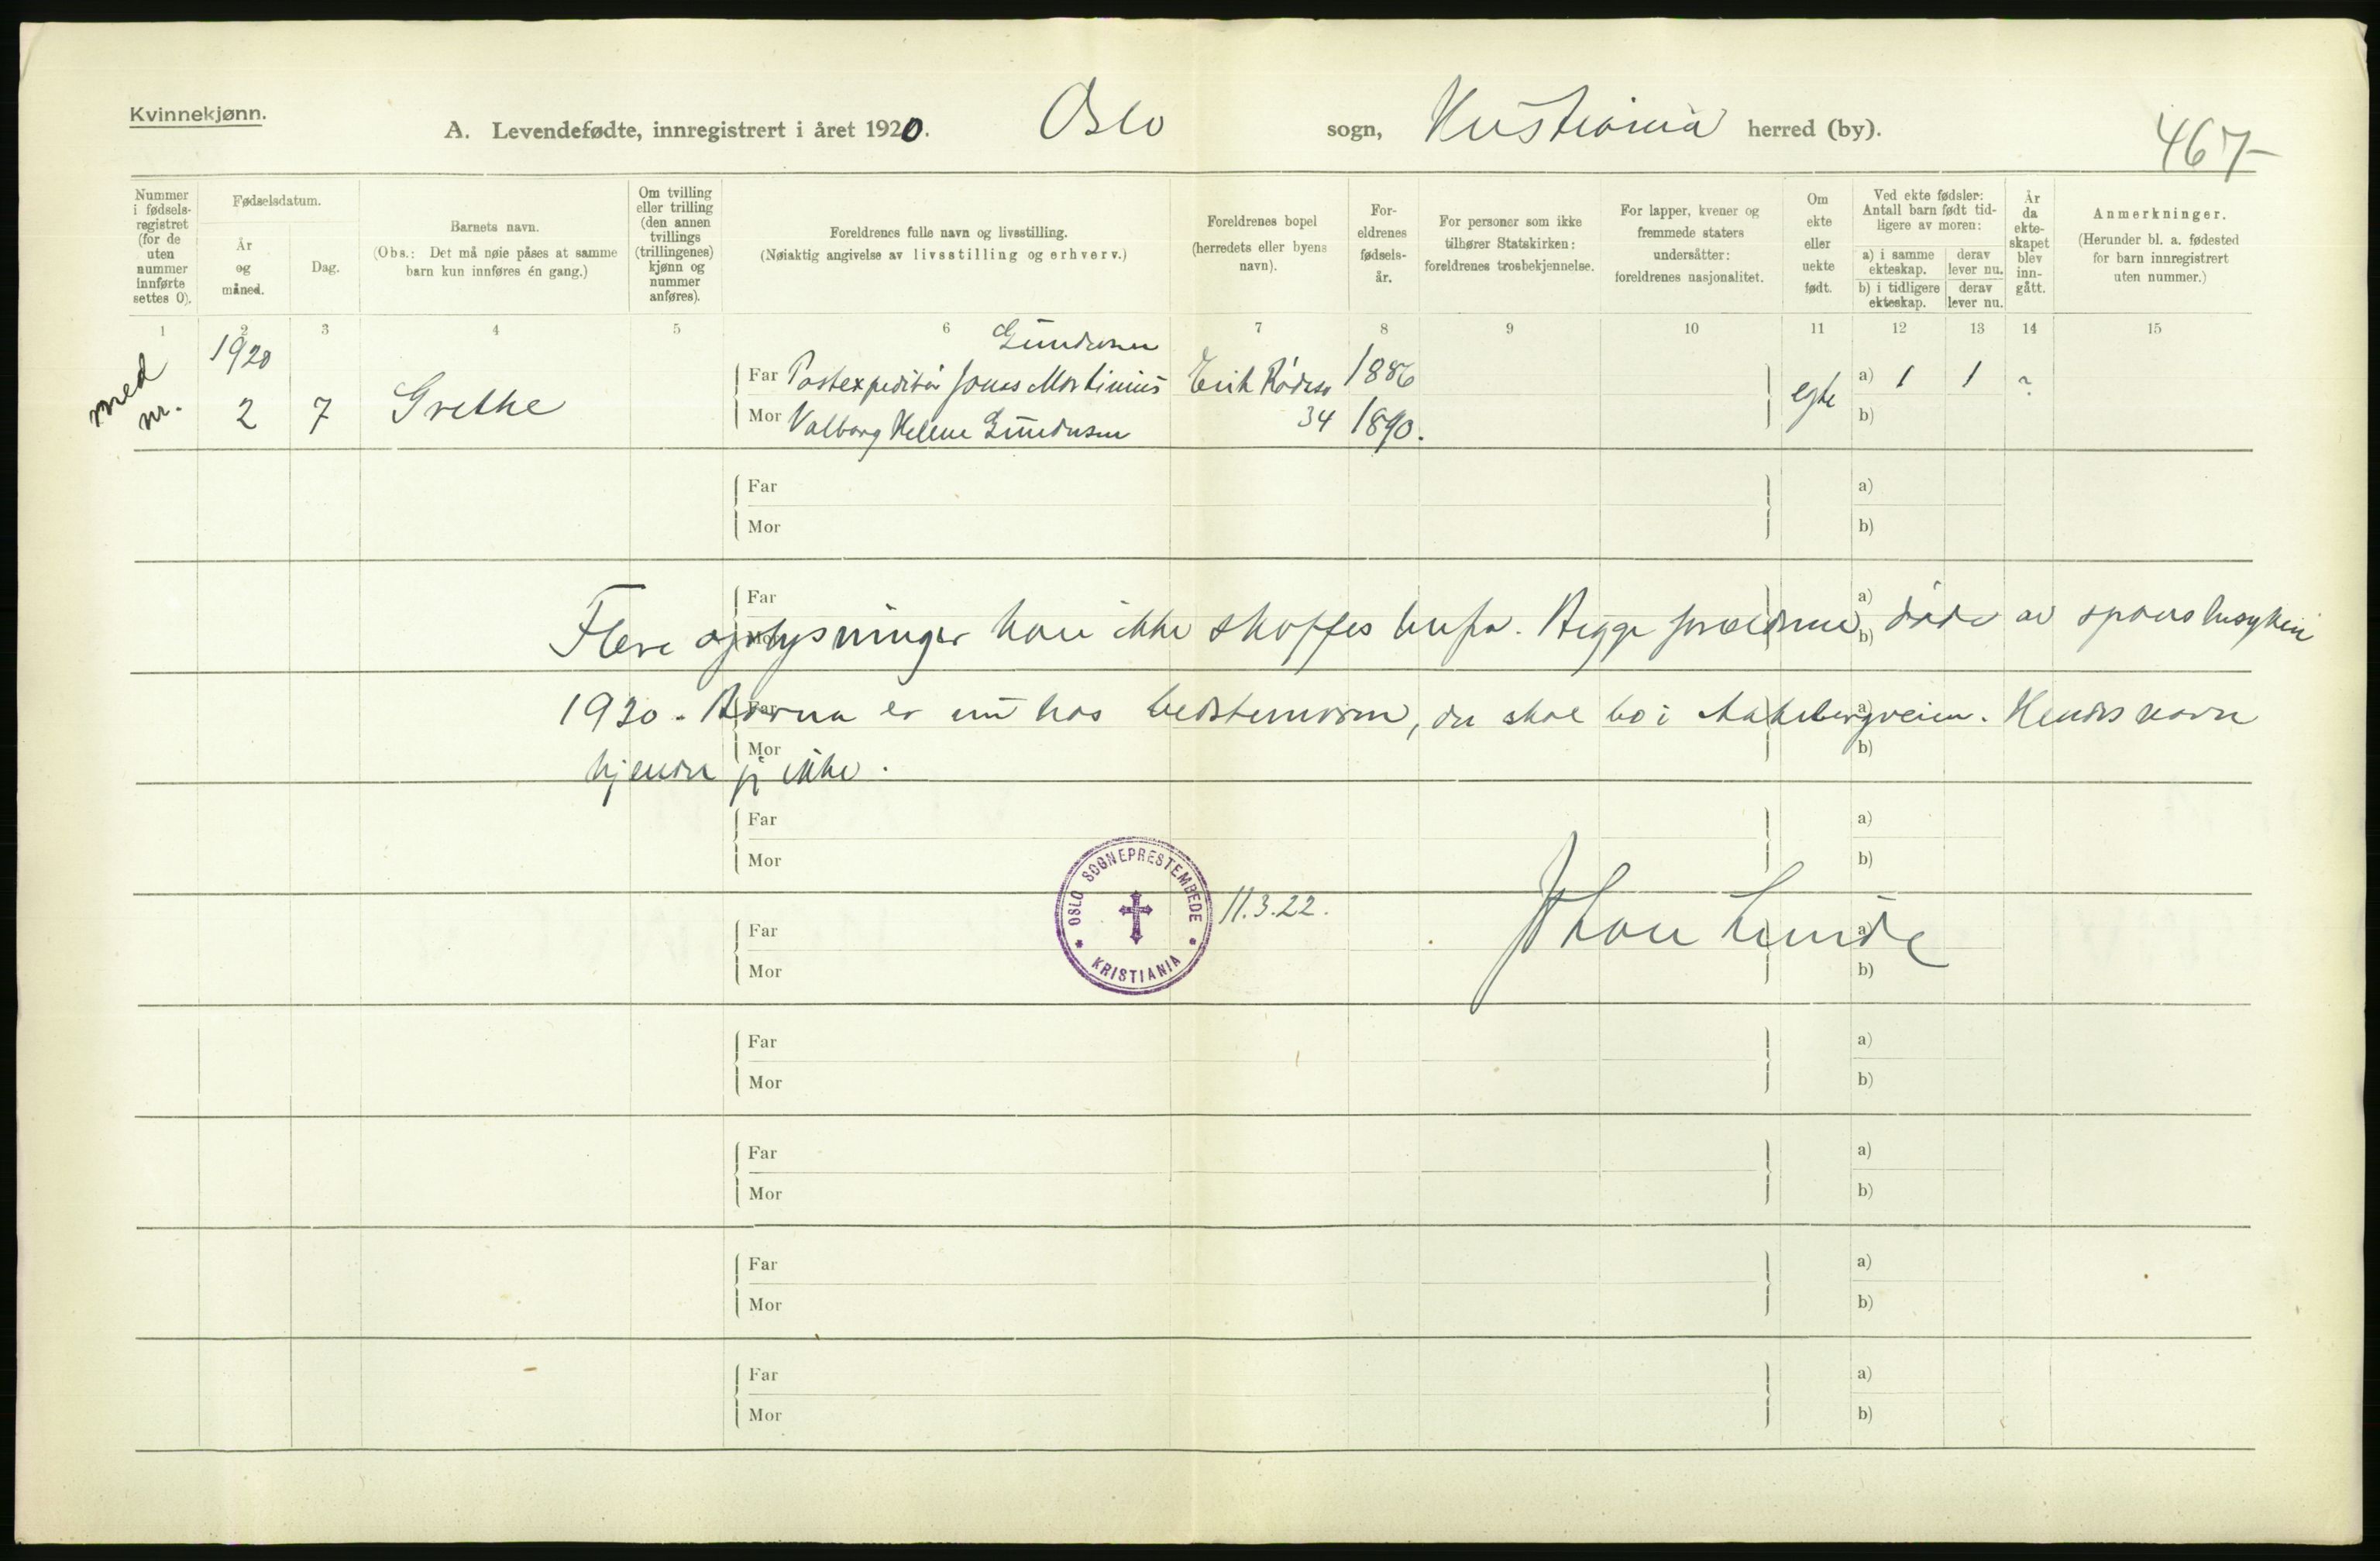 Kvinnekjønn.
A. Levendefødte, innregistrert i året 1920. Oslo sogn, Kristiania herred (by).
467
Nummer i fødsels-registret (for de uten nummer innførte settes 0).
Fødselsdatum.
År og måned.
Dag.
Barnets navn.
(Obs.: Det må nøie påses at samme barn kun innføres én gang.)
Om tvilling eller trilling (den annen tvillings (trillingenes) kjønn og nummer anføres).
Foreldrenes fulle navn og livsstilling.
(Nøiaktig angivelse av livsstilling og erhverv.)
Foreldrenes bopel (herredets eller byens navn).
For-eldrenes fødsels-år.
For personer som ikke tilhører Statskirken: foreldrenes trosbekjennelse.
For lapper, kvener og fremmede staters undersåtter: foreldrenes nasjonalitet.
Om ekte eller uekte født.
Ved ekte fødsler: Antall barn født tid-ligere av moren:
a) i samme ekteskap.
derav lever nu.
b) i tidligere ekteskap.
derav lever nu.
År da ekte-skapet blev inn-gått.
Anmerkninger.
(Herunder bl. a. fødested for barn innregistrert uten nummer.)
1 2 3 4 5 6 7 8 9 10 11 12 13 14 15
med nr.
1920
2 7 Grethe
Gundersen
Far Postexpeditør Jonas Martinius Erik Rødesg 1886
Mor Valborg Helene Gundersen 34 1890.
egte
a) 1 1 ?
b)
Far a)
Mor b)
Far a)
Mor b)
Flere oplysninger kan ikke skaffes herfra. Begge forældrene døde av spanskesyken
1920. Barna er nu hos bedstemoren, der skal bo i Aakebergveien. Hendes navn
kjender jeg ikke.
Far a)
Mor b)
Far a)
Mor b)
OSLO SOGNEPRESTEMBEDE
* KRISTIANIA *
11.3.22.
Johan Lunde
Far a)
Mor b)
Far a)
Mor b)
Far a)
Mor b)
Far a)
Mor b)
Far a)
Mor b)